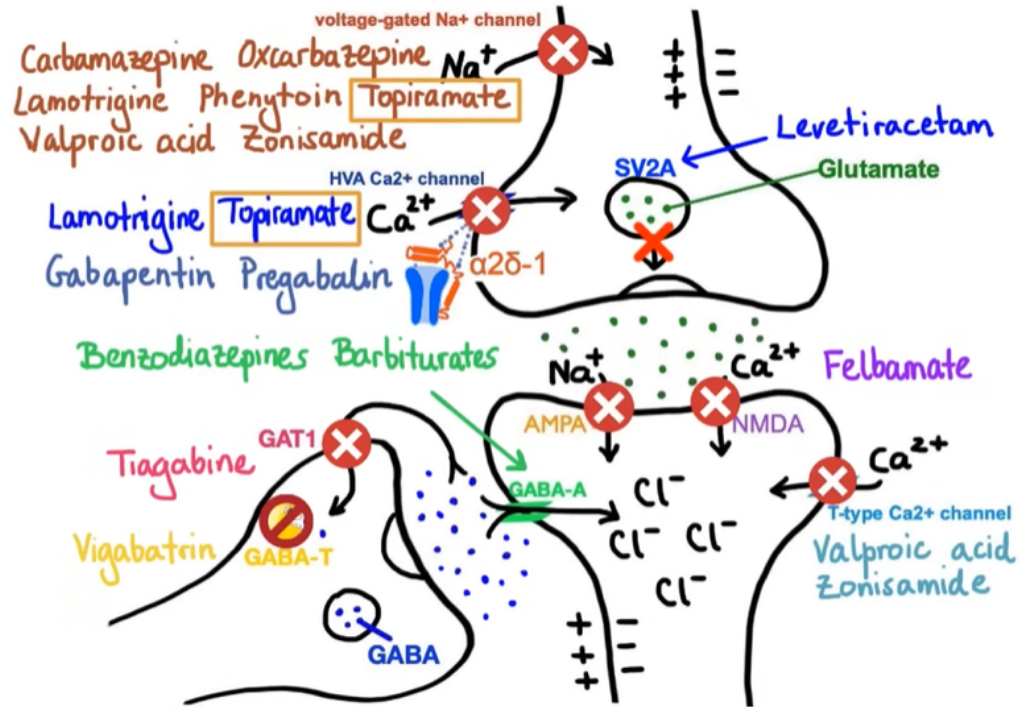 voltage-gated Na+ channel
Carbamazepine Oxcarbazepine
Na+
Lamotrigine Phenytoin Topiramate
Valproic acid Zonisamide
+ −
+ −
+ −
Levetiracetam
SV2A
Glutamate
HVA Ca2+ channel
Lamotrigine Topiramate Ca2+
α2δ-1
Gabapentin Pregabalin
Benzodiazepines Barbiturates
Na+
Ca2+
Felbamate
AMPA
NMDA
GAT1
Tiagabine
Ca2+
GABA-A
Cl−
T-type Ca2+ channel
Cl− Cl−
Vigabatrin
GABA-T
Valproic acid
Zonisamide
Cl−
GABA
+ −
+ −
+ −